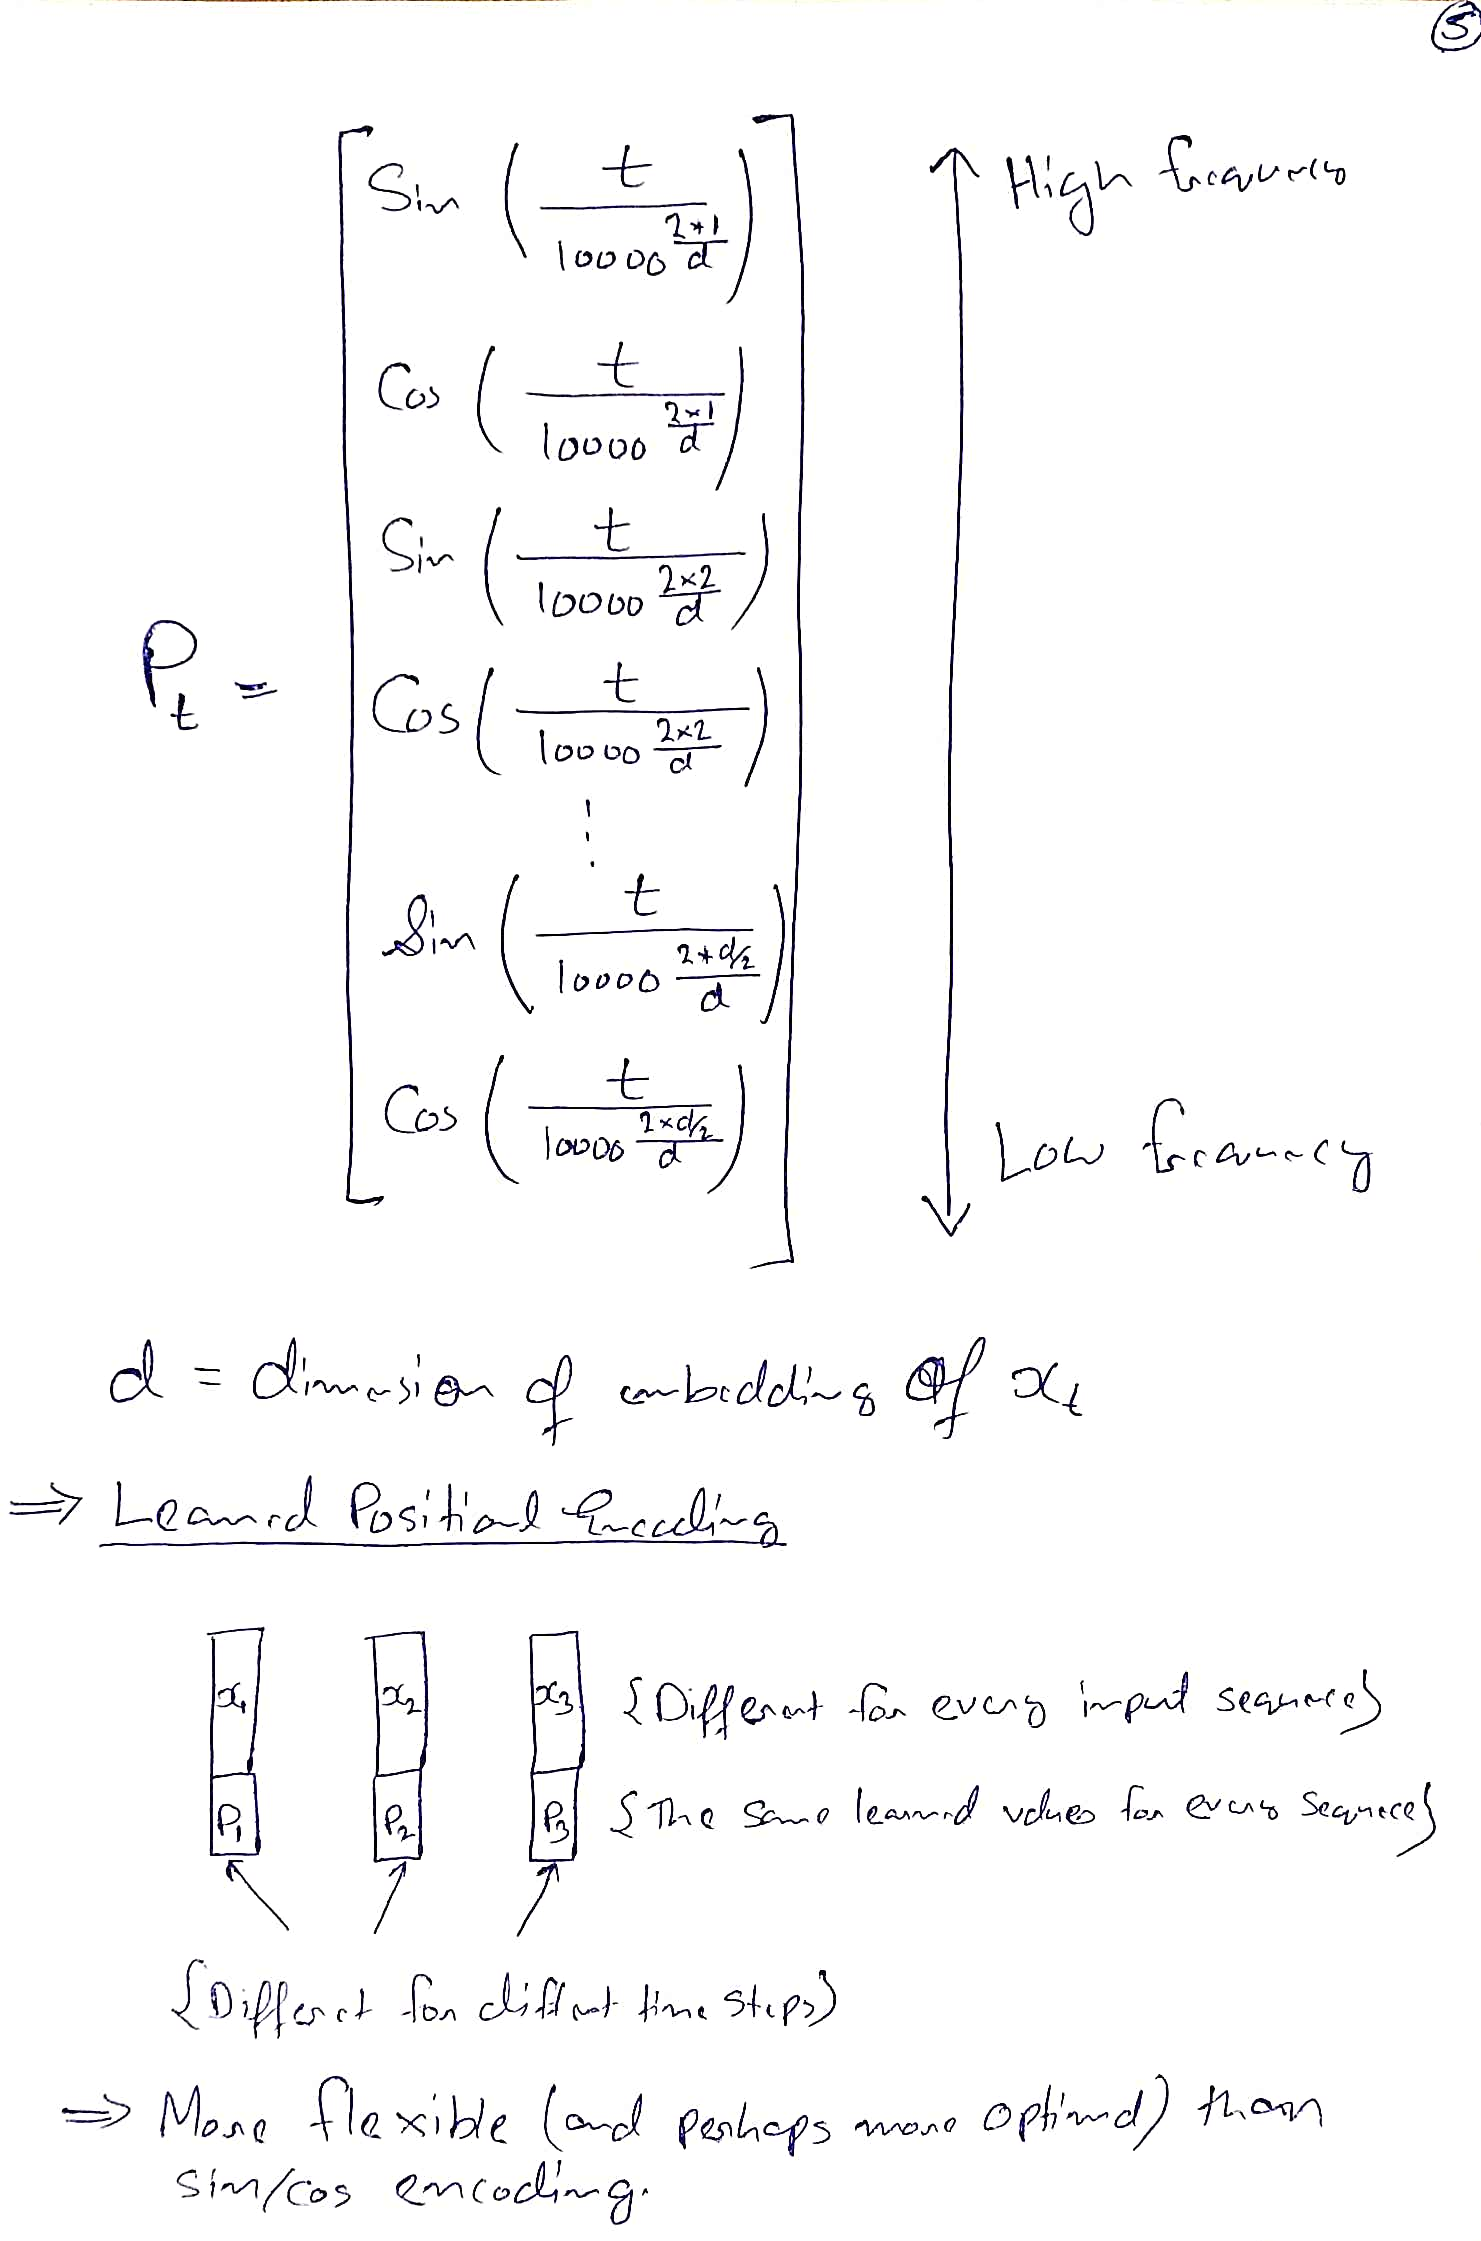 5
P_t =
Sin ( t / 10000^(2*1/d) )
High frequency
Cos ( t / 10000^(2×1/d) )
Sin ( t / 10000^(2×2/d) )
Cos ( t / 10000^(2×2/d) )
⋮
Sin ( t / 10000^(2*d/2/d) )
Cos ( t / 10000^(2×d/2/d) )
Low frequency
d = dimension of embedding of x_t
⇒ Learned Positional Encoding
x_1 x_2 x_3 {Different for every input sequence}
P_1 P_2 P_3 {The same learned values for every sequence}
{Different for different time steps}
⇒ More flexible (and perhaps more optimal) than
sin/cos encoding.